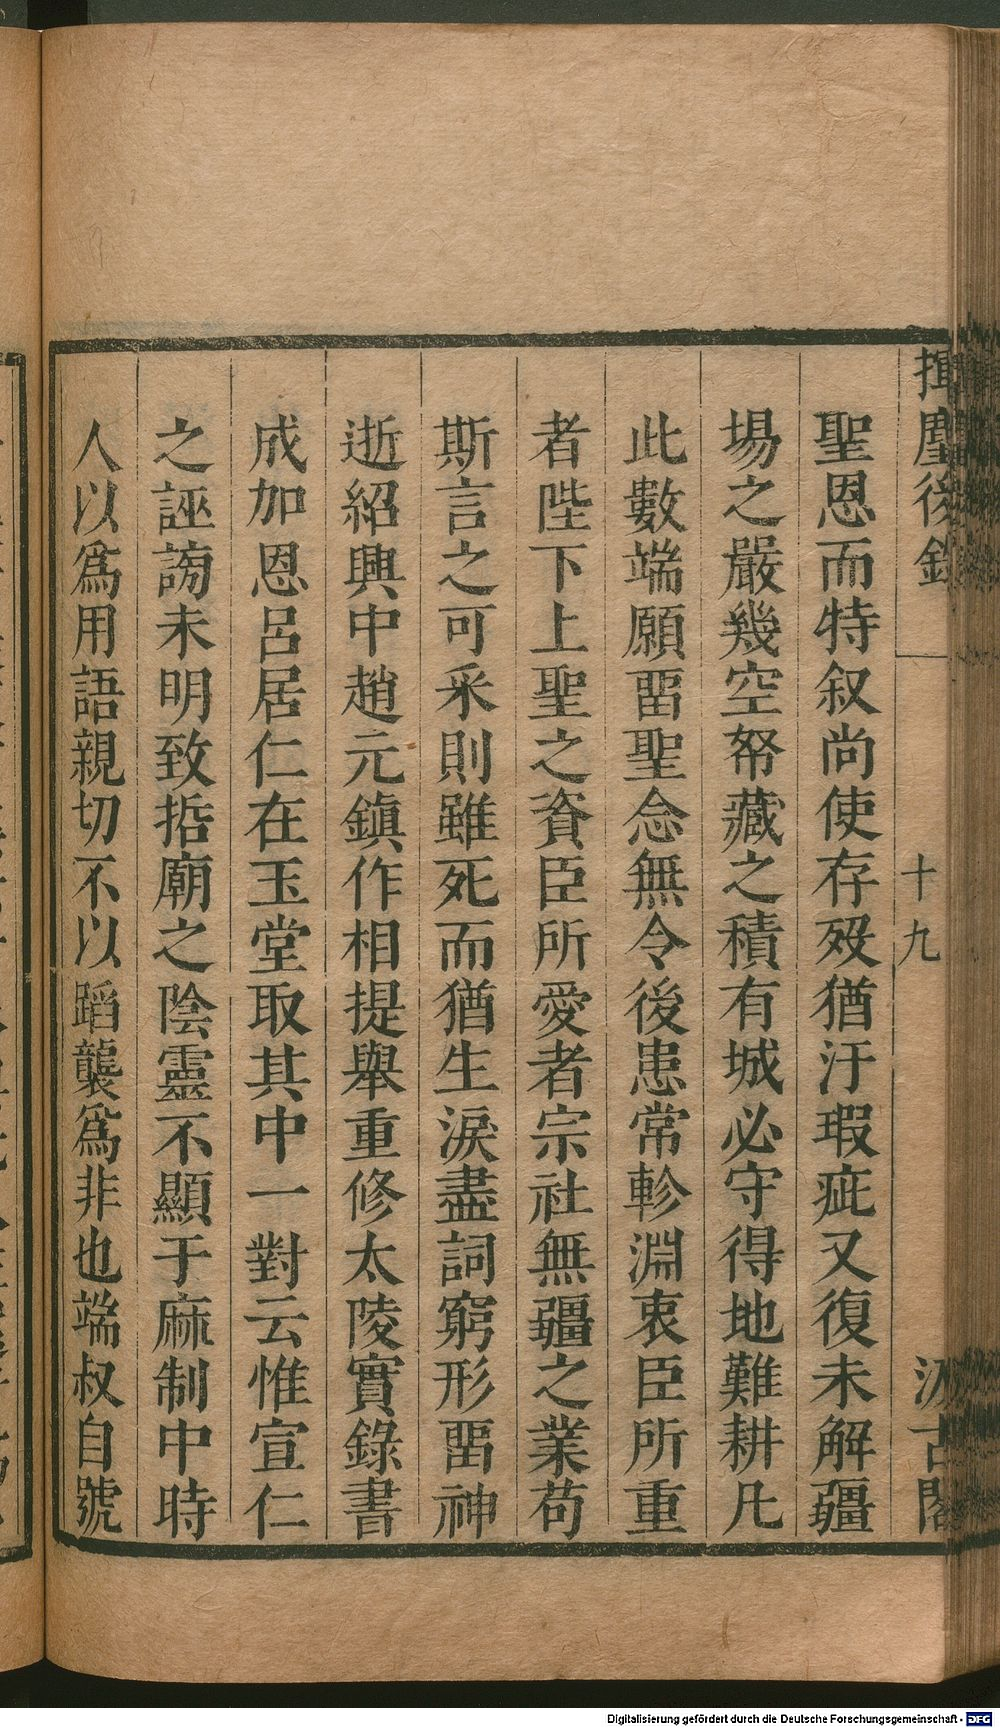 揮麈後錄
十九
汲古閣
聖恩而特叙尚使存殁猶汙瑕疵又復未解疆
場之嚴幾空帑藏之積有城必守得地難耕凡
此數端願畱聖念無令後患常軫淵衷臣所重
者陛下上聖之資臣所愛者宗社無疆之業苟
斯言之可釆則雖死而猶生淚盡詞窮形畱神
逝紹興中趙元鎮作相提舉重修太陵實錄書
成加恩呂居仁在玉堂取其中一對云惟宣仁
之誣謗未明致㤴廟之陰靈不顯于麻制中時
人以爲用語親切不以蹈襲爲非也端叔自號
Digitalisierung gefördert durch die Deutsche Forschungsgemeinschaft - DFG